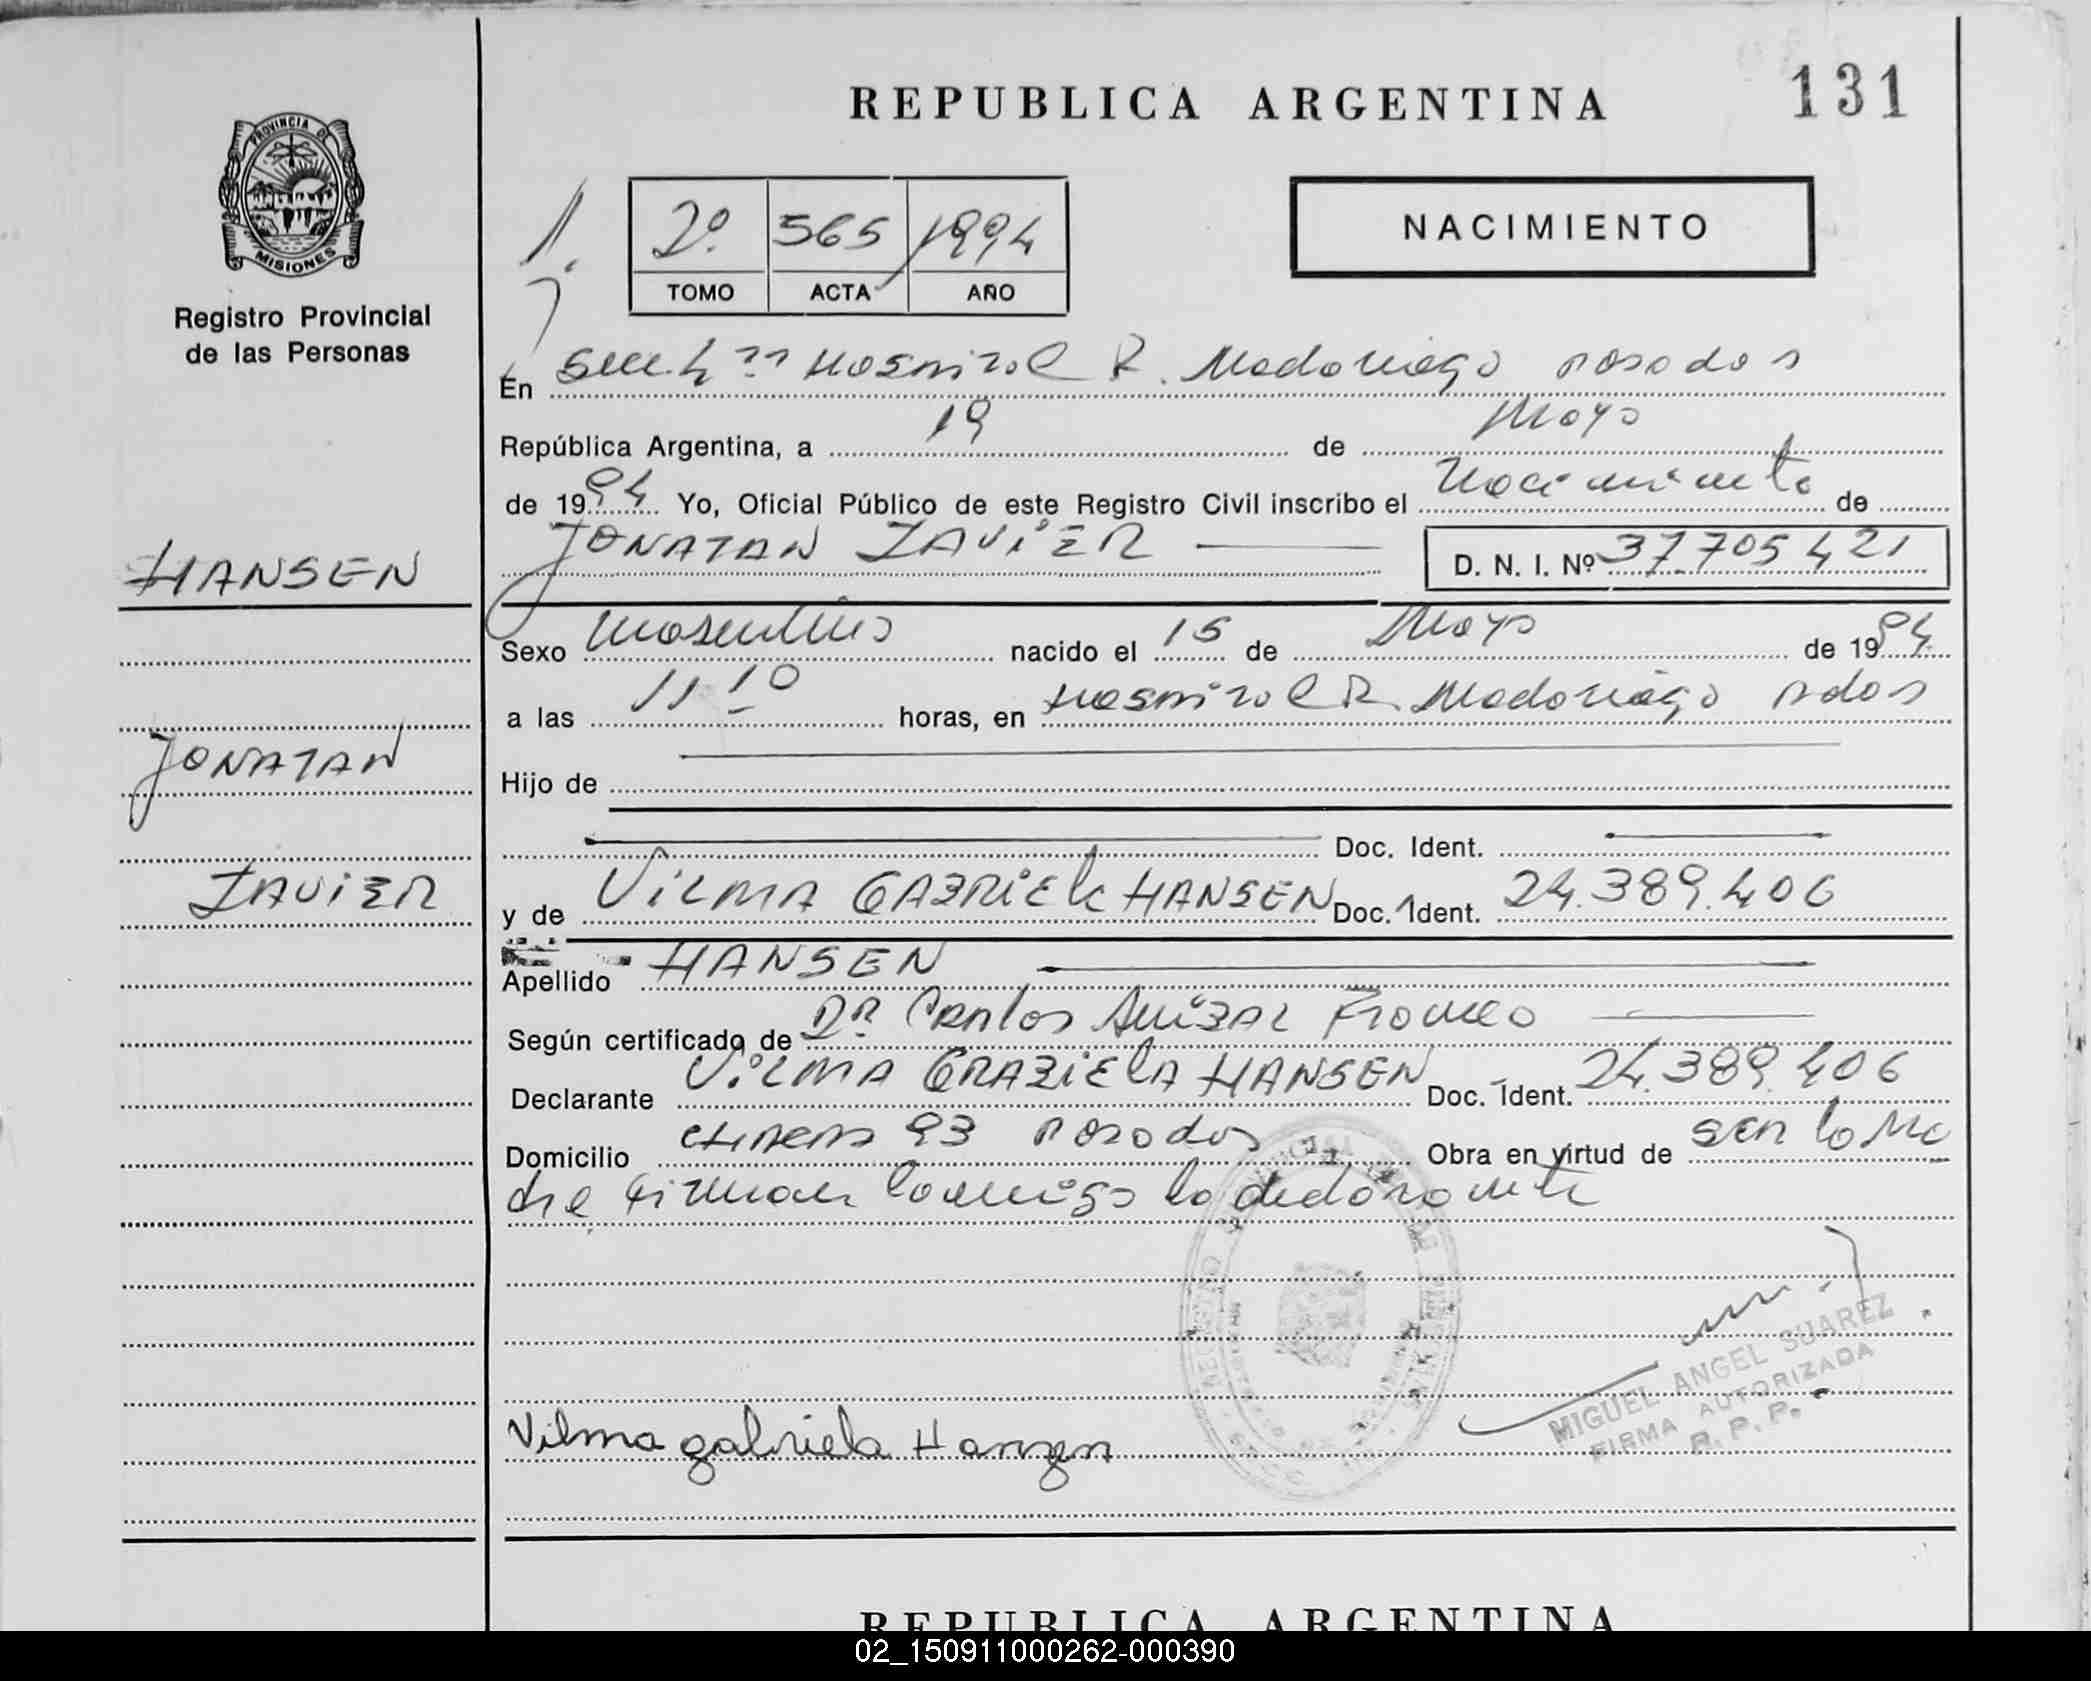 REPUBLICA ARGENTINA
131
PROVINCIA DE
MISIONES
Registro Provincial
de las Personas
2º 565 1994
TOMO ACTA AÑO
NACIMIENTO
En Secc. 4ª Hospital R. Madariaga Posadas
República Argentina, a 19 de Mayo
de 1994 Yo, Oficial Público de este Registro Civil inscribo el Nacimiento de
JONATAN JAVIER
D. N. I. Nº 37.705.421
HANSEN
JONATAN
JAVIER
Sexo masculino nacido el 15 de Mayo de 1994
a las 11 10 horas, en Hospital R. Madariaga Pdas
Hijo de
Doc. Ident.
y de VILMA GABRIELA HANSEN Doc. Ident. 24.389.406
Apellido HANSEN
Según certificado de Dr. Carlos Anibal
Declarante VILMA GRABIELA HANSEN Doc. Ident. 24.389.406
Domicilio 93 Posadas Obra en virtud de ser la Ma
dre, firman conmigo la declarante
MIGUEL ANGEL SUAREZ
FIRMA AUTORIZADA
R. P. P.
Vilma gabriela Hansen
REPUBLICA ARGENTINA
02_150911000262-000390